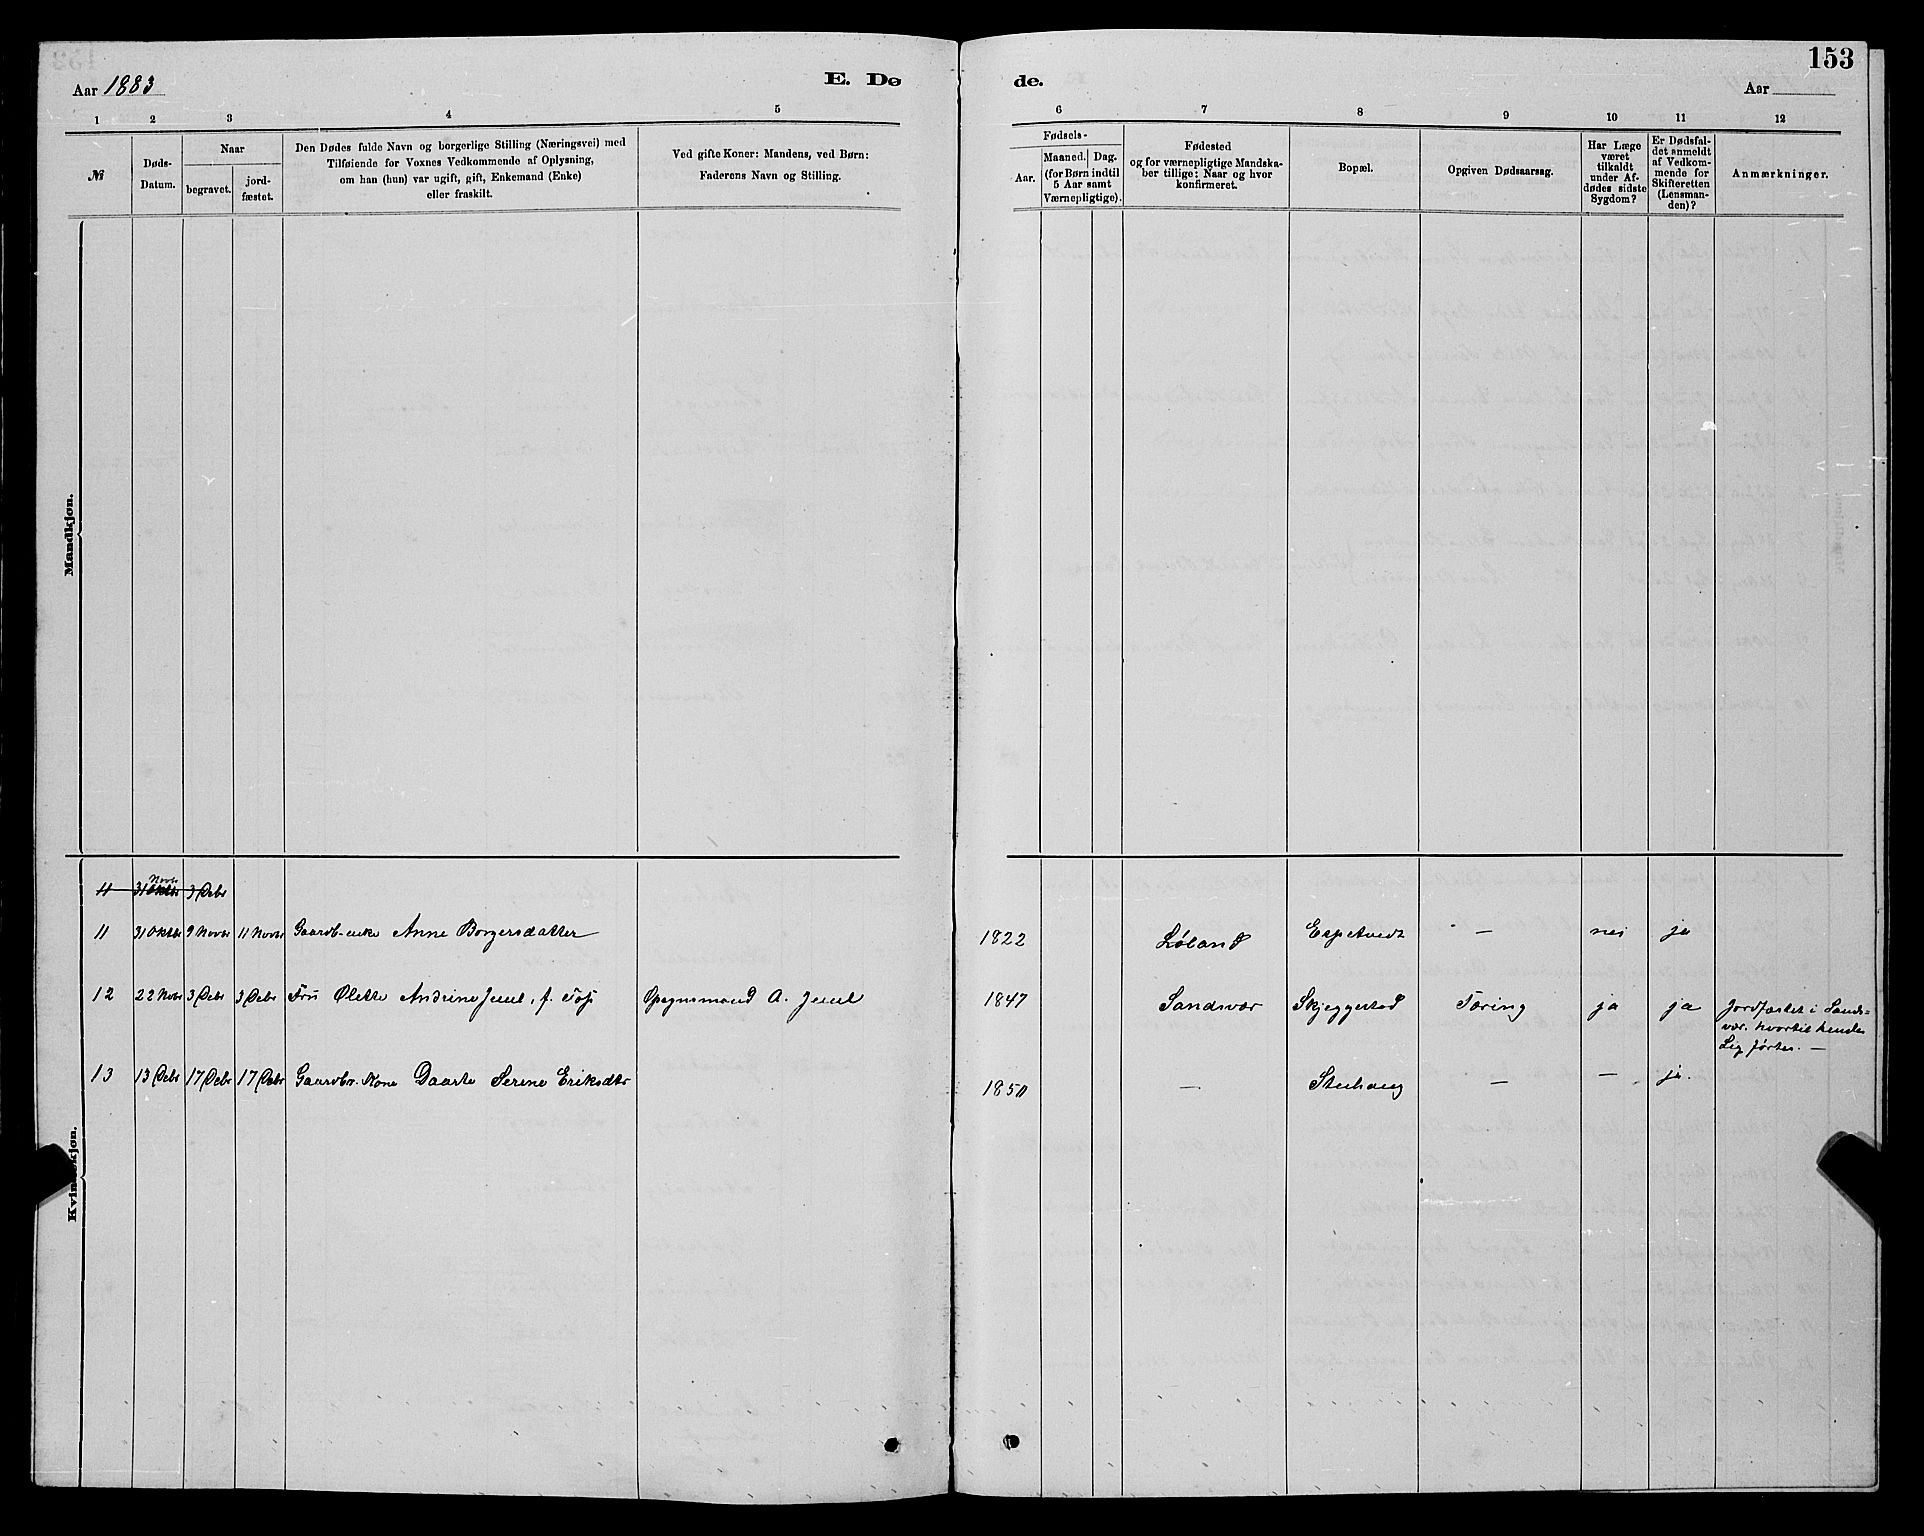 153
Aar 1883
E. Dø
de.
Aar
1
2
3
4
5
6
7
8
9
10
11
12
№
Døds-
Datum.
Naar
begravet.
jord-
fæstet.
Den Dødes fulde Navn og borgerlige Stilling (Næringsvei) med
Tilføiende for Voxnes Vedkommende af Oplysning,
om han (hun) var ugift, gift, Enkemand (Enke)
eller fraskilt.
Ved gifte Koner: Mandens, ved Børn:
Faderens Navn og Stilling.
Fødsels-
Aar.
Maaned.
Dag.
(for Børn indtil
5 Aar samt
Værnepligtige).
Fødested
og for værnepligtige Mandska-
ber tillige: Naar og hvor
konfirmeret.
Bopæl.
Opgiven Dødsaarsag.
Har Læge
været
tilkaldt
under Af-
dødes sidste
Sygdom?
Er Dødsfal-
det anmeldt
af Vedkom-
mende for
Skifteretten
(Lensman-
den)?
Anmærkninger.
Mandkjøn.
Kvindekjøn.
Novbr
11 31 Oktbr 3 Debr
11 31 Oktbr 9 Novbr 11 Novbr Gaardb-enke Anne Borgersdatter 1822 Løland Espetvedt — nei ja
12 22 Novbr 3 Debr 3 Debr Fru Olette Andrine Juul, f. Opsynsmand A. Juul 1847 Sandsvær Skjeggestad Tæring ja ja Jordfæstet i Sands-
vær, hvortil hendes
Lig førtes. —
13 13 Debr 17 Debr 17 Debr Gaardbr. Kone Daarte Serine Eriksdtr 1850 — Stuhaug — — ja.